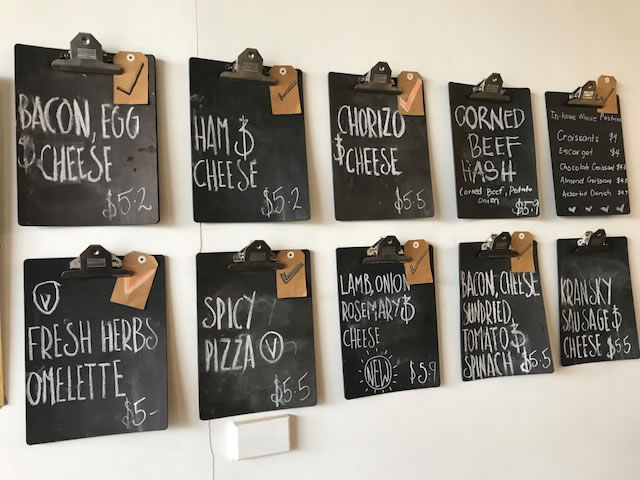 BACON, EGG
& CHEESE
$5.2
HAM &
CHEESE
$5.2
CHORIZO
& CHEESE
$5.5
CORNED
BEEF
HASH
(Corned Beef, Potato
Onion
$5.9
In-house Made Pastries
Croissants $4
Escargot $4
Chocolate Croissant
Almond Croissant
Assorted Danish
V
FRESH HERBS
OMELETTE
$5-
SPICY
PIZZA V
$5.5
LAMB, ONION
ROSEMARY &
CHEESE
NEW
$5.9
BACON, CHEESE
SUNDRIED
TOMATO &
SPINACH $5.5
KRANSKY
SAUSAGE &
CHEESE $5.5